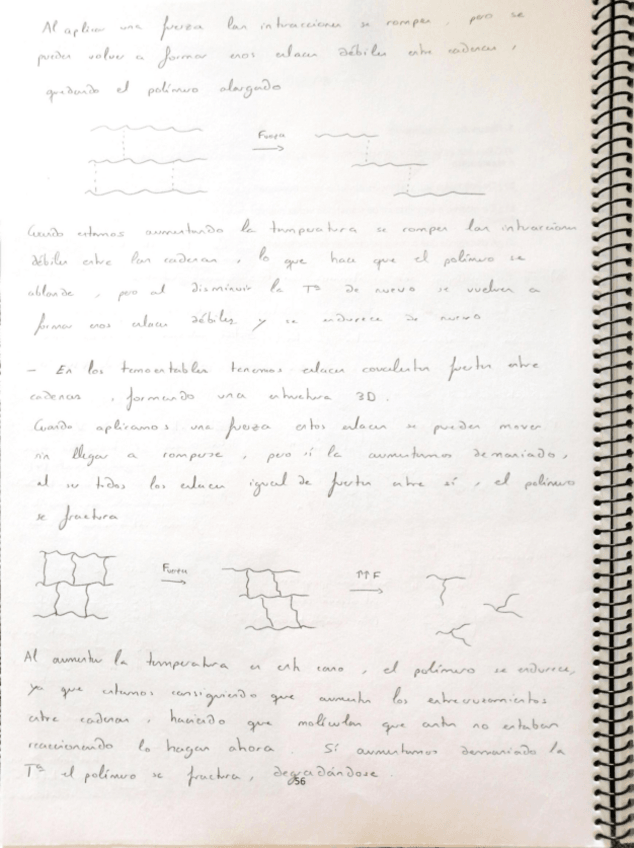 Al aplicar una fuerza las interacciones se rompen, pero se
pueden volver a formar esos enlaces débiles entre cadenas,
quedando el polímero alargado
Fuerza
Cuando estamos aumentando la temperatura se rompen las interacciones
débiles entre las cadenas, lo que hace que el polímero se
ablande, pero al disminuir la Tª de nuevo se vuelven a
formar esos enlaces débiles y se endurece de nuevo
- En los termoestables tenemos enlaces covalentes fuertes entre
cadenas, formando una estructura 3D.
Cuando aplicamos una fuerza estos enlaces se pueden mover
sin llegar a romperse, pero sí la aumentamos demasiado,
al ser todos los enlaces igual de fuertes entre sí, el polímero
se fractura
Fuerza
↑↑F
Al aumentar la temperatura en este caso, el polímero se endurece,
ya que estamos consiguiendo que aumenten los entrecruzamientos
entre cadenas, haciendo que moléculas que antes no estaban
reaccionando lo hagan ahora. Sí aumentamos demasiado la
Tª el polímero se fractura, degradándose.
56